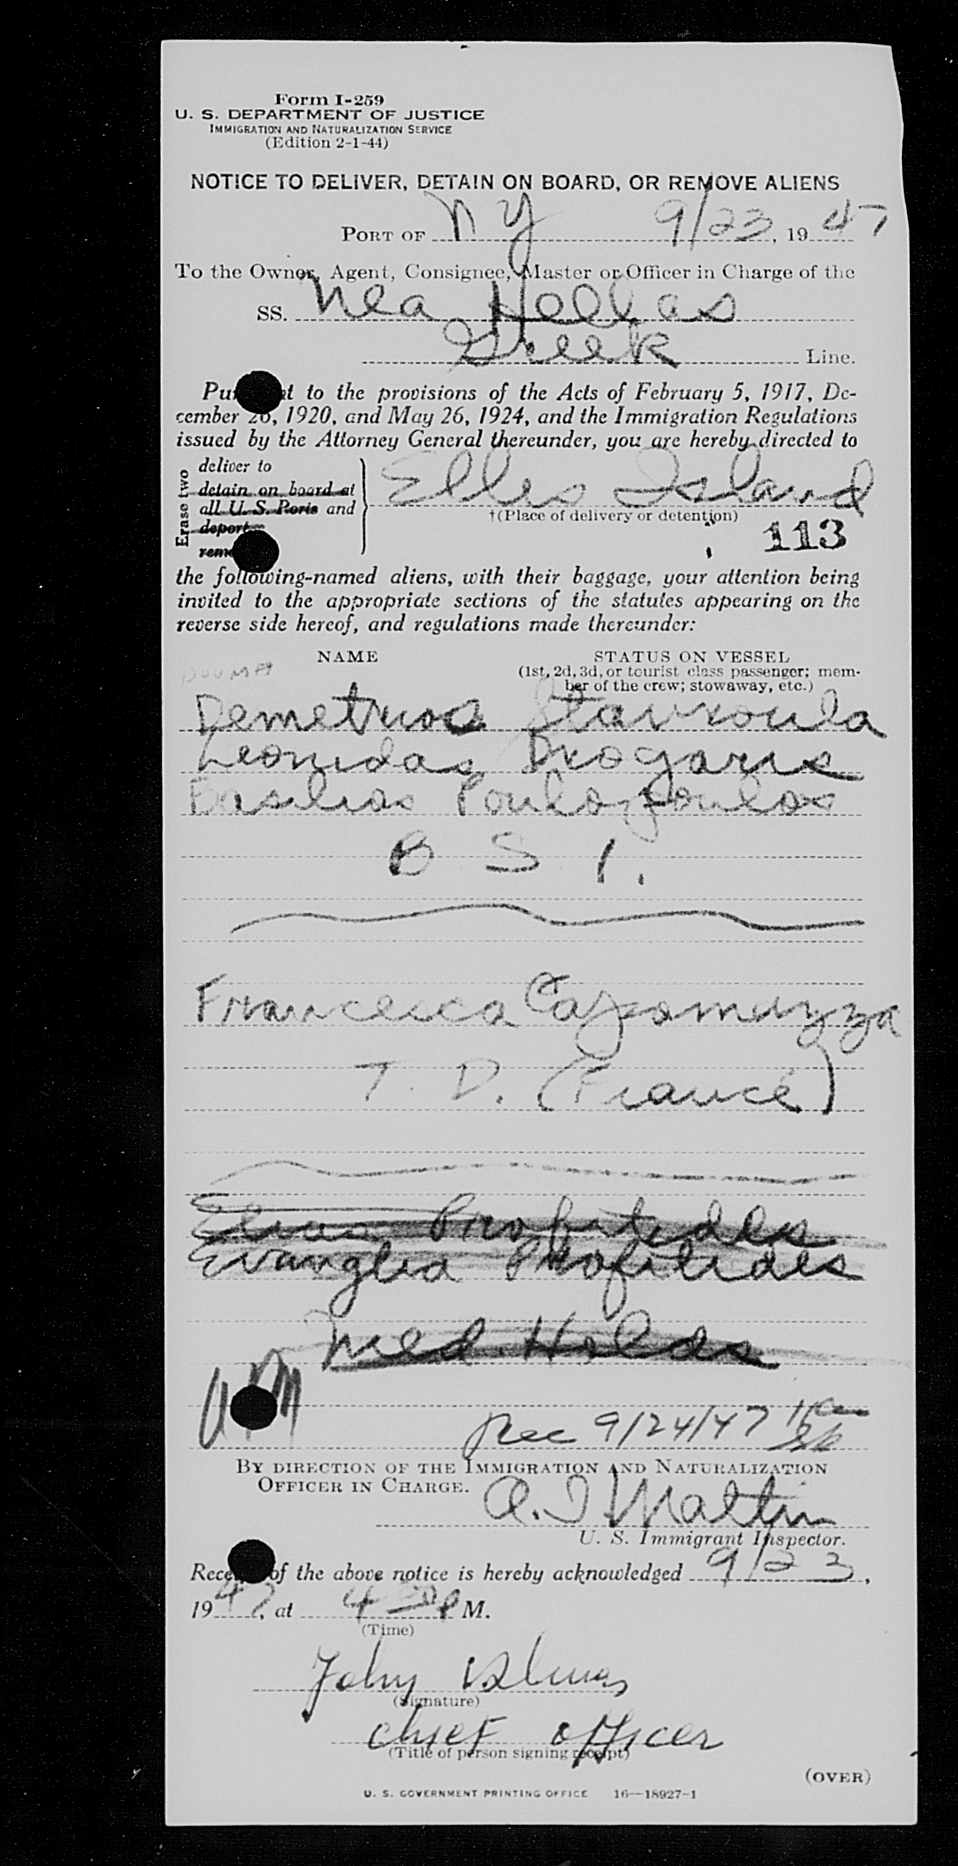 Form I-259
U. S. DEPARTMENT OF JUSTICE
IMMIGRATION AND NATURALIZATION SERVICE
(Edition 2-1-44)
NOTICE TO DELIVER, DETAIN ON BOARD, OR REMOVE ALIENS
PORT OF N Y 9/23, 19 47
To the Owner, Agent, Consignee, Master or Officer in Charge of the
SS. Nea Hellas
Greek Line.
to the provisions of the Acts of February 5, 1917, De-
cember 26, 1920, and May 26, 1924, and the Immigration Regulations
issued by the Attorney General thereunder, you are hereby directed to
Erase two
deliver to
detain on board at
all U. S. Ports and
deport
Ellis Island
†(Place of delivery or detention)
113
the following-named aliens, with their baggage, your attention being
invited to the appropriate sections of the statutes appearing on the
reverse side hereof, and regulations made thereunder:
NAME STATUS ON VESSEL
(1st, 2d, 3d, or tourist class passenger; mem-
ber of the crew; stowaway, etc.)
Demetrios Stavroula
Leonidas Drogaris
Basilios Poulopoulos
B S I.
Francesca Capomezza
T. D. (France)
Elias Profitides
Evanglia Profitides
Med. Holds
Rec 9/24/47
BY DIRECTION OF THE IMMIGRATION AND NATURALIZATION
OFFICER IN CHARGE.
U. S. Immigrant Inspector.
of the above notice is hereby acknowledged 9/23,
1947, at 4 30 P M.
(Time)
John
(Signature)
chief officer
(Title of person signing receipt)
(OVER)
U. S. GOVERNMENT PRINTING OFFICE 16—18927-1